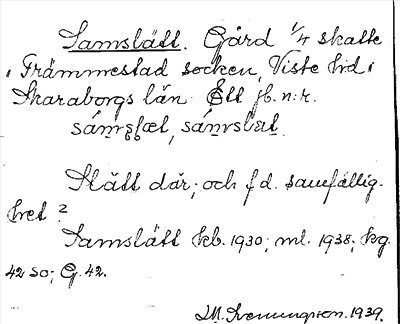 Samslätt. Gård 1/4 skatte
i Främmestad socken, Viste hd i
Skaraborgs län. Ett jb.n:r.
sámslæt, sámslæt.
Slätt där; och f.d. samfällig-
het?
Samslätt kb. 1930; ml. 1938; kg.
42 so; G. 42.
Sveningsson. 1939.